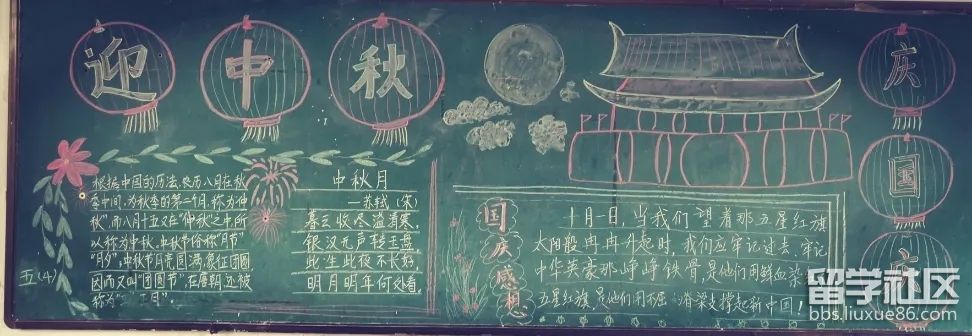 迎中秋
根据中国的历法,农历八月在秋
季中间,为秋季的第二个月,称为仲
秋"而八月十五又在"仲秋"之中,所
以称为中秋。中秋节俗称"月节"
"月夕",中秋节月亮圆满,象征团圆,
因而又叫"团圆节",在唐朝,还被
称为" 正月"。
五(4)
中秋月
—苏轼(宋)
暮云收尽溢清寒,
银汉无声转玉盘
此生此夜不长好,
明月明年何处看。
国庆感想
十月一日,当我们望着那五星红旗
太阳般冉冉升起时,我们应牢记过去,牢记
中华英豪那铮铮铁骨,是他们用鲜血染
五星红旗,是他们用不屈 脊梁支撑起新中国!
庆国庆
留学社区
bbs.liuxue86.com